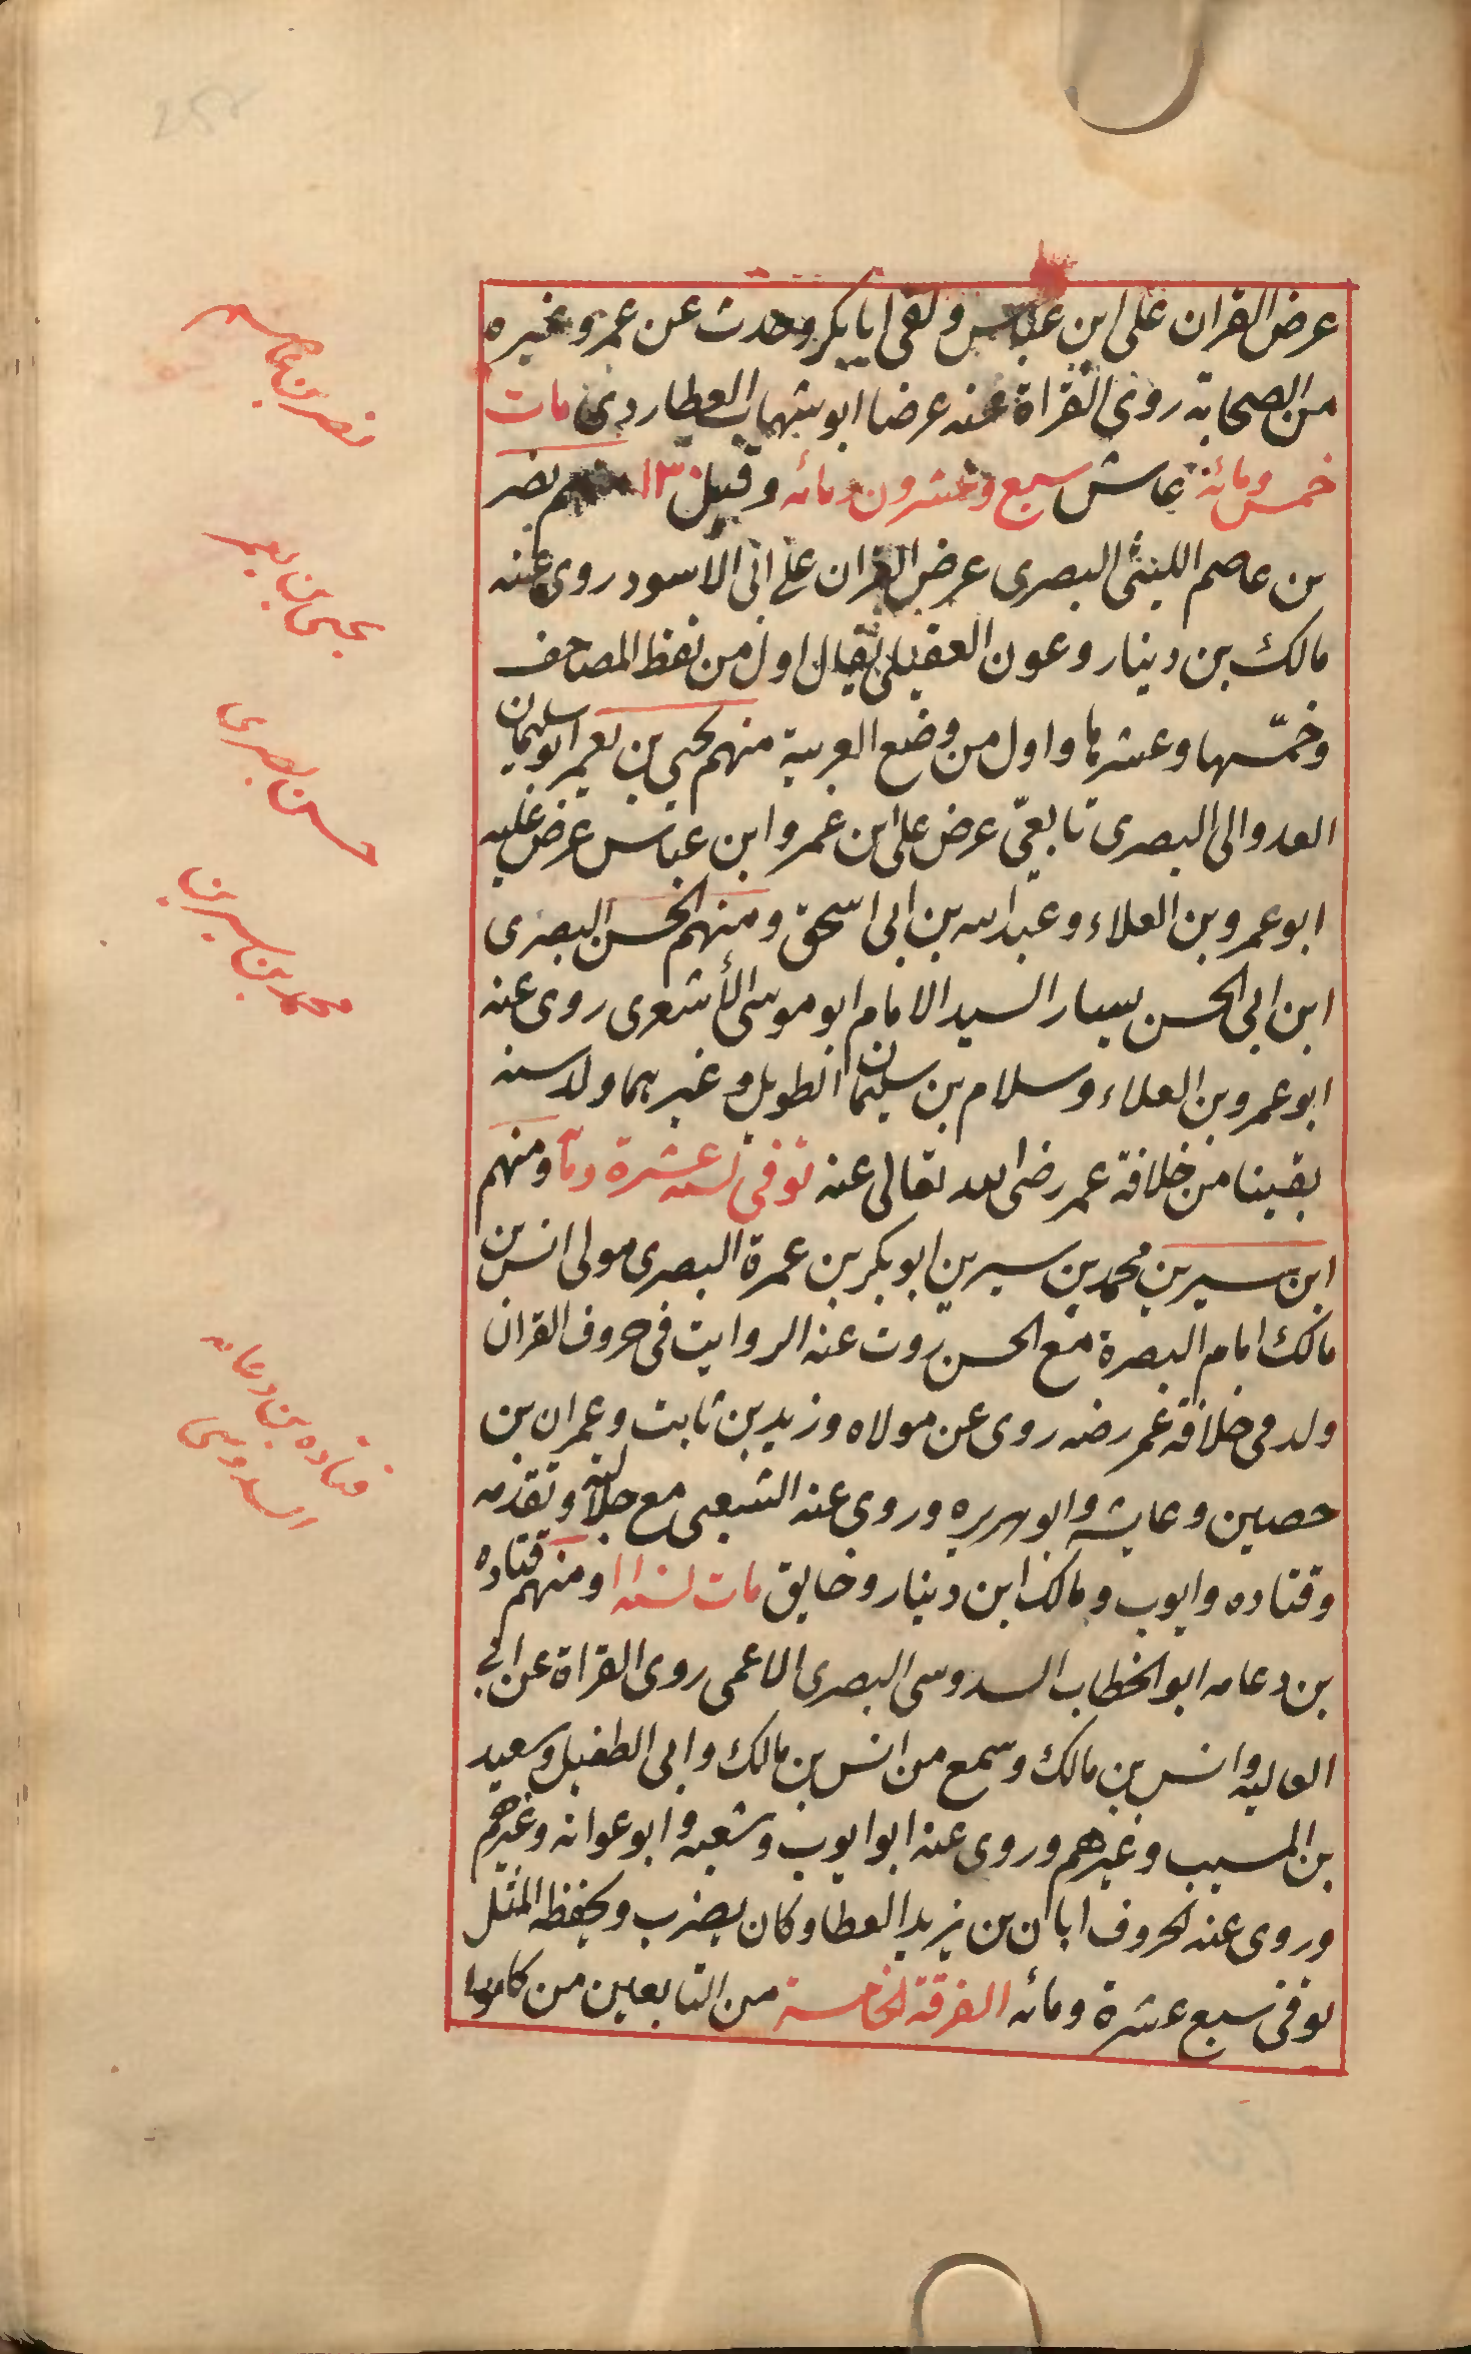 عرض القران على ابن عباس ولقى ابا بكر وحدث عن عمر وغيره
من الصحابة روى القراة عنه عرضا ابو شهاب العطاردى مات
خمس ومائة عاش سبع وعشرون ومائه وقيل ١٣٠ منهم نصر
بن عاصم الليثى البصرى عرض القران على ابى الاسود روى عنه
مالك بن دينار وعون العقيلى يقال اول من نقط المصاحف
وخمّسها وعشرها واول من وضع العربية منهم يحيى بن يعمر ابو سليمان
العدوالى البصرى تابعىّ عرض على ابن عمر وابن عباس عرض عليه
ابو عمرو بن العلاء وعبد الله بن ابى اسحق ومنهم الحسن البصرى
ابن ابى الحسن يسار السيد الامام ابو موسى الأشعرى روى عنه
ابو عمرو بن العلاء وسلام بن سليمان الطويل وغيرهما ولد سنه
بقينا من خلافة عمر رضى الله تعالى عنه توفى سنه عشرة ومأ ومنهم
ابن سيرين محمد بن سيرين ابو بكر بن عمرة البصرى مولى انس بن
مالك امام البصرة مع الحسن روت عنه الروايت فى حروف القران
ولد فى خلافة عمر رضه روى عن مولاه وزيد بن ثابت وعمران بن
حصين وعايشه وابو هريره وروى عنه الشعبى مع جلالته وتقدمه
وقتاده وايوب ومالك ابن دينار وخايق مات سنه ١١ ومنهم قتاده
بن دعامه ابو الخطاب السدوسى البصرى الاعمى روى القراة عن ابى
العاليه وانس بن مالك وسمع من انس بن مالك وابى الطفيل وسعيد
بن المسيب وغيرهم وروى عنه ابو ايوب وشعبه وابو عوانه وغيرهم
وروى عنه الحروف ابان بن يزيد العطا وكان يضرب وبحفظه المثل
توفى سبع عشرة ومائه الفرقة الخامسة من التابعين من كانوا
نصر بن عاصم
يحيى بن يعمر
حسن بصرى
محمد بن سيرين
قتاده بن دعامه
السدوسى